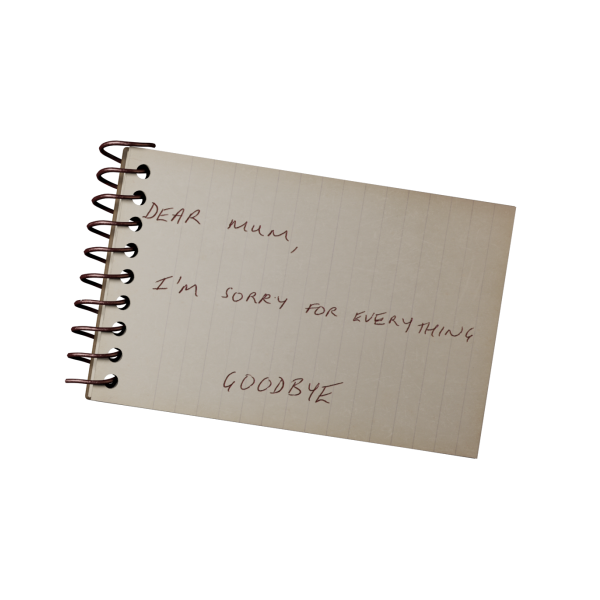 DEAR MUM,
I'M SORRY FOR EVERYTHING
GOODBYE